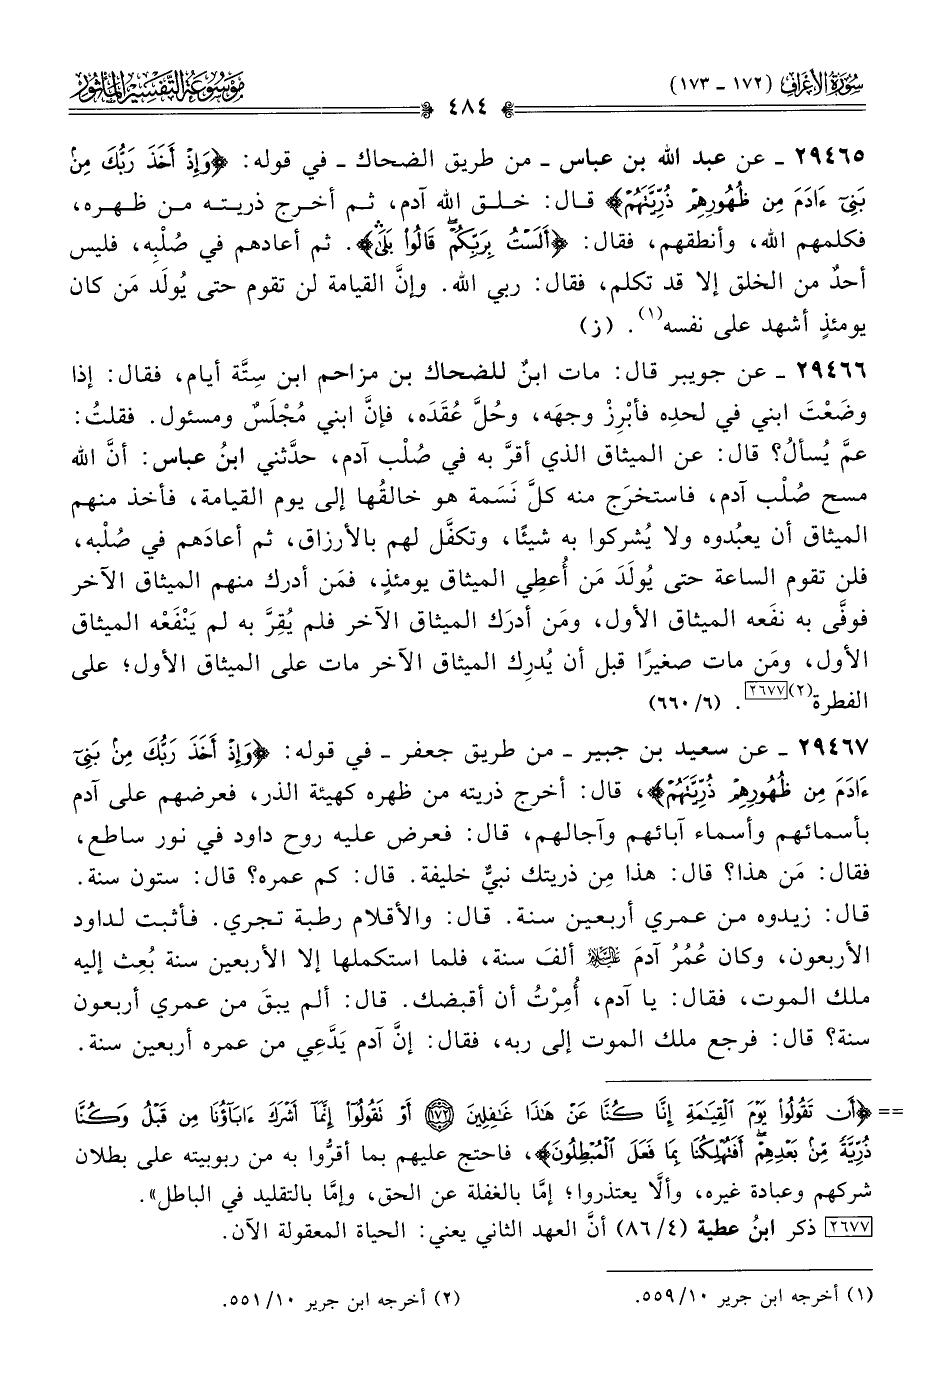 سُورَةُ الأَعْرَافِ (١٧٢ - ١٧٣)
٤٨٤
مَوْسُوعَةُ التَّفْسِيرِ المَأْثُور
٢٩٤٦٥ ـ عن عبد الله بن عباس ـ من طريق الضحاك ـ في قوله: ﴿وَإِذْ أَخَذَ رَبُّكَ مِنْ
بَنِيٓ ءَادَمَ مِن ظُهُورِهِمْ ذُرِّيَّتَهُمْ﴾ قال: خلق الله آدم، ثم أخرج ذريته من ظهره،
فكلمهم الله، وأنطقهم، فقال: ﴿أَلَسْتُ بِرَبِّكُمْ ۖ قَالُوا۟ بَلَىٰ ۛ﴾. ثم أعادهم في صُلْبِه، فليس
أحدٌ من الخلق إلا قد تكلم، فقال: ربي الله. وإنَّ القيامة لن تقوم حتى يُولَد مَن كان
يومئذٍ أشهد على نفسه(١). (ز)
٢٩٤٦٦ ـ عن جويبر قال: مات ابنٌ للضحاك بن مزاحم ابن سِتَّة أيام، فقال: إذا
وضَعْتَ ابني في لحدِه فأبْرِزْ وجهَه، وحُلَّ عُقَدَه، فإنَّ ابني مُجْلَسٌ ومسئول. فقلتُ:
عمَّ يُسألُ؟ قال: عن الميثاق الذي أقرَّ به في صُلْب آدم، حدَّثني ابنُ عباس: أنَّ الله
مسح صُلْب آدم، فاستخرَج منه كلَّ نَسَمة هو خالقُها إلى يوم القيامة، فأخذ منهم
الميثاق أن يعبُدوه ولا يُشركوا به شيئًا، وتكفَّل لهم بالأرزاق، ثم أعادَهم في صُلْبه،
فلن تقوم الساعة حتى يُولَدَ مَن أُعطِي الميثاق يومئذٍ، فمَن أدرك منهم الميثاق الآخر
فوفَّى به نفَعه الميثاق الأول، ومَن أدرَك الميثاق الآخر فلم يُقِرَّ به لم يَنْفَعْه الميثاق
الأول، ومَن مات صغيرًا قبل أن يُدرِك الميثاق الآخر مات على الميثاق الأول؛ على
الفطرة(٢)٢٦٧٧. (٦/ ٦٦٠)
٢٩٤٦٧ ـ عن سعيد بن جبير ـ من طريق جعفر ـ في قوله: ﴿وَإِذْ أَخَذَ رَبُّكَ مِنْ بَنِيٓ
ءَادَمَ مِن ظُهُورِهِمْ ذُرِّيَّتَهُمْ﴾، قال: أخرج ذريته من ظهره كهيئة الذر، فعرضهم على آدم
بأسمائهم وأسماء آبائهم وآجالهم، قال: فعرض عليه روح داود في نور ساطع،
فقال: مَن هذا؟ قال: هذا مِن ذريتك نبيٌّ خليفة. قال: كم عمره؟ قال: ستون سنة.
قال: زيدوه من عمري أربعين سنة. قال: والأقلام رطبة تجري. فأثبت لداود
الأربعون، وكان عُمُرُ آدمَ عليه السلام ألفَ سنة، فلما استكملها إلا الأربعين سنة بُعِث إليه
ملك الموت، فقال: يا آدم، أُمِرْتُ أن أقبضك. قال: ألم يبقَ من عمري أربعون
سنة؟ قال: فرجع ملك الموت إلى ربه، فقال: إنَّ آدم يَدَّعِي من عمره أربعين سنة.
== ﴿أَن تَقُولُوا۟ يَوْمَ ٱلْقِيَٰمَةِ إِنَّا كُنَّا عَنْ هَٰذَا غَٰفِلِينَ ١٧٢ أَوْ تَقُولُوٓا۟ إِنَّمَآ أَشْرَكَ ءَابَآؤُنَا مِن قَبْلُ وَكُنَّا
ذُرِّيَّةً مِّنۢ بَعْدِهِمْ ۖ أَفَتُهْلِكُنَا بِمَا فَعَلَ ٱلْمُبْطِلُونَ﴾، فاحتج عليهم بما أقرُّوا به من ربوبيته على بطلان
شركهم وعبادة غيره، وألَّا يعتذروا؛ إمَّا بالغفلة عن الحق، وإمَّا بالتقليد في الباطل».
٢٦٧٧ ذكر ابنُ عطية (٤/ ٨٦) أنَّ العهد الثاني يعني: الحياة المعقولة الآن.
(١) أخرجه ابن جرير ١٠/ ٥٥٩.
(٢) أخرجه ابن جرير ١٠/ ٥٥١.